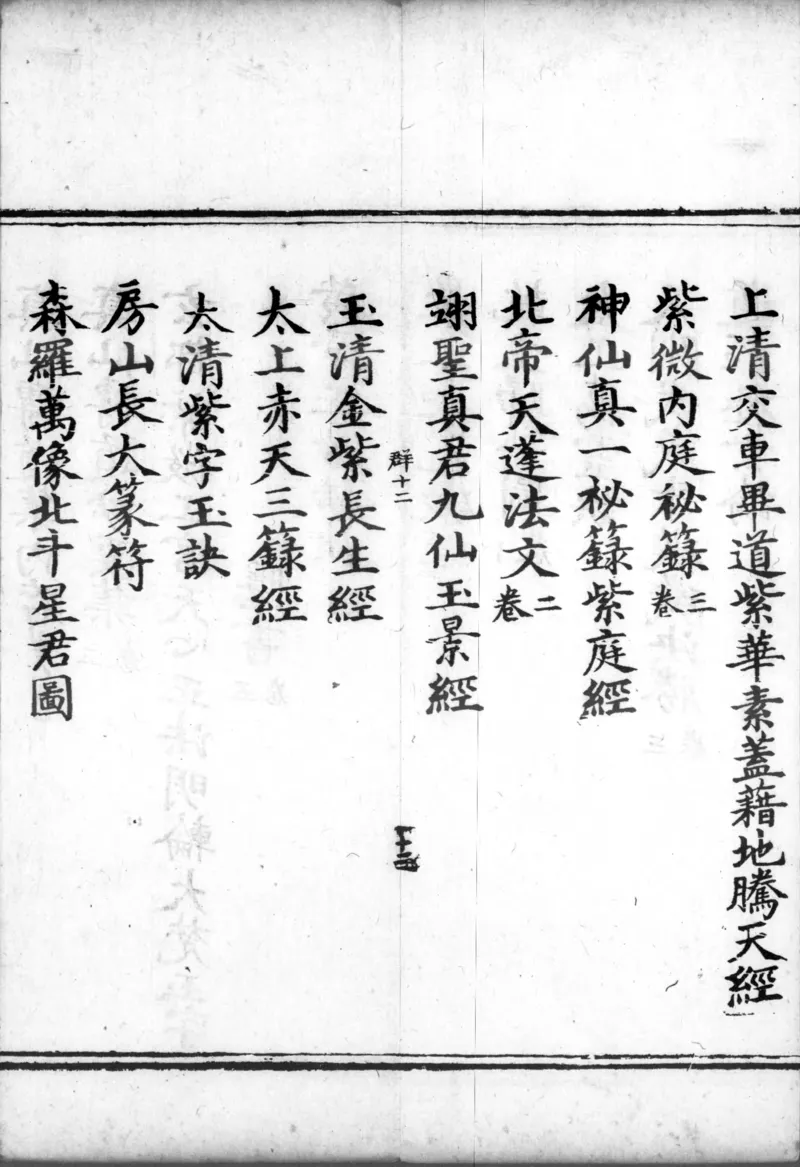 上清交車畢道紫華素蓋藉地騰天經
紫微内庭祕籙三卷
神仙真一祕籙紫庭經
北帝天蓬法文二卷
翊聖真君九仙玉景經
群十二
玉清金紫長生經
太上赤天三籙經
太清紫字玉訣
房山長大篆符
森羅萬像北斗星君圖